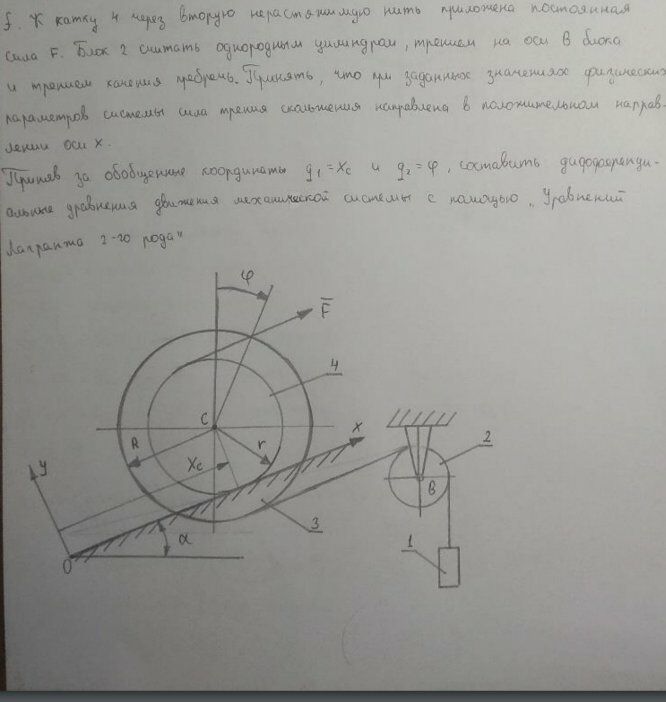 f. К катку 4 через вторую нерастяжимую нить приложена постоянная
сила F. Блок 2 считать однородным цилиндром, трением на оси B блока
и трением качения пребречь. Принять, что при заданных значениях физических
параметров системы сила трения скольжения направлена в положительном направ-
лении оси x.
Приняв за обобщенные координаты q₁ = x_c и q₂ = φ, составить дифференци-
альные уравнения движения механической системы с помощью „Уравнений
Лагранжа 2-го рода"
φ
F̄
4
C
R
r
x
2
y
x_c
B
3
α
1
O